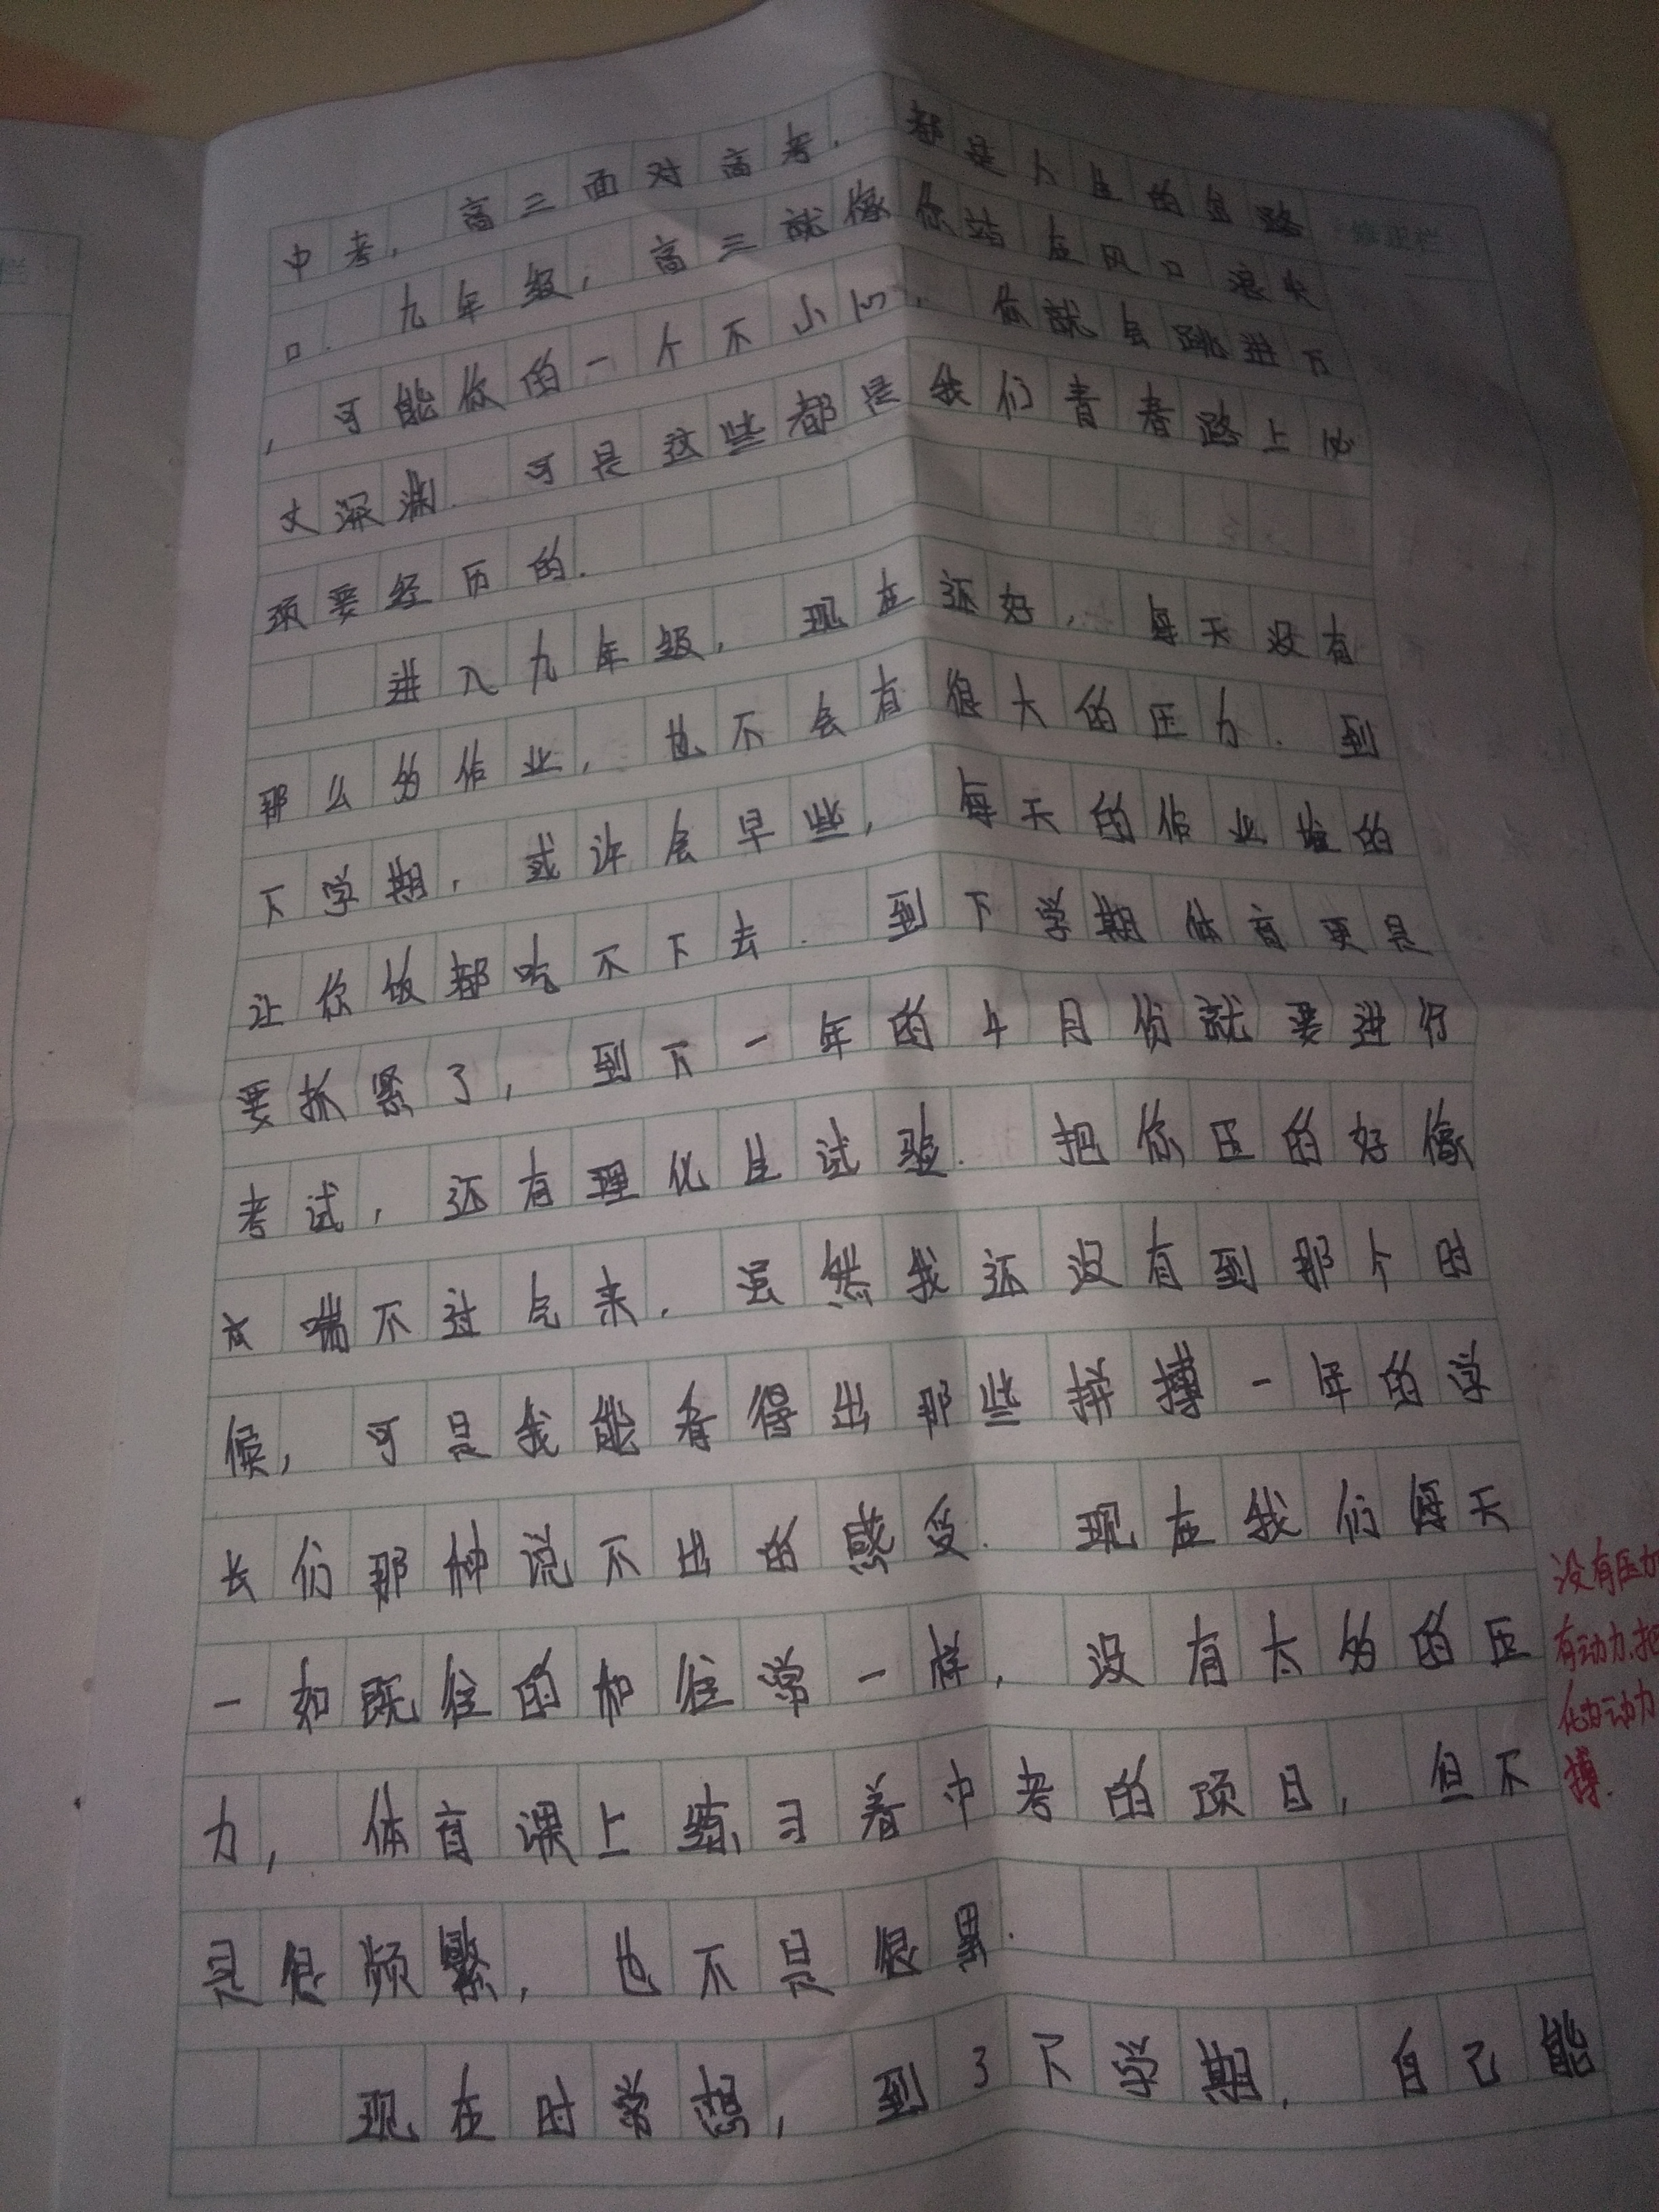 中考，高三面对高考，都是人生的岔路
口.九年级，高三就像你站在风口浪尖
，可能你的一个不小心，你就会跳进万
丈深渊.可是这些都是我们青春路上必
须要经历的.
进入九年级，现在还好，每天没有
那么多作业，也不会有很大的压力.到
下学期，或许会早些，每天的作业堆的
让你饭都吃不下去.到下学期体育更是
要抓紧了，到下一年的4月份就要进行
考试，还有理化生试验.把你压的好像
喘不过气来.虽然我还没有到那个时
候，可是我能看得出那些拼搏一年的学
长们那种说不出的感受.现在我们每天
一如既往的和往常一样，没有太多的压
力，体育课上练习着中考的项目，但不
是很频繁，也不是很累.
现在时常想，到了下学期，自己能
没有压力
有动力.把
化为动力
搏.
修正栏
栏